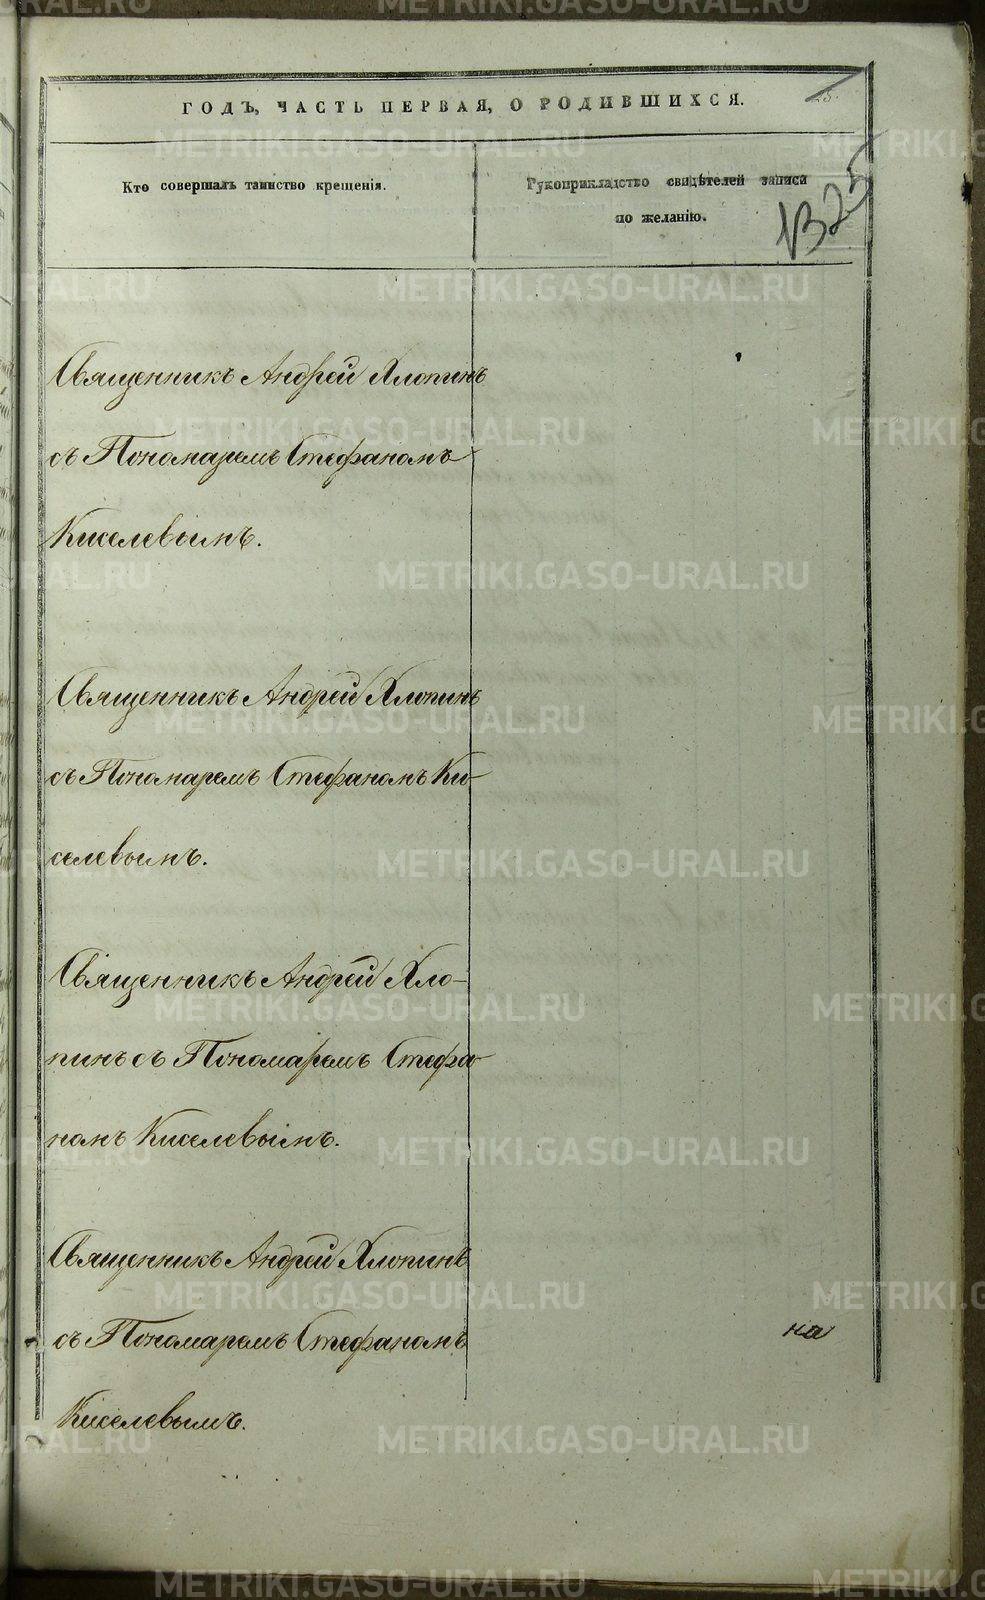 25.
ГОДЪ, ЧАСТЬ ПЕРВАЯ, О РОДИВШИХСЯ.
Кто совершалъ таинство крещенія.
Рукоприкладство свидѣтелей записи
по желанію.
1325
Священникъ Андрей Хлопинъ
съ Пономаремъ Стефаномъ
Киселевымъ.
Священникъ Андрей Хлопинъ
съ Пономаремъ Стефаномъ Ки-
селевымъ.
Священникъ Андрей Хло-
пинъ съ Пономаремъ Стефа-
номъ Киселевымъ.
Священникъ Андрей Хлопинъ
съ Пономаремъ Стефаномъ
Киселевымъ.
на
METRIKI.GASO-URAL.RU